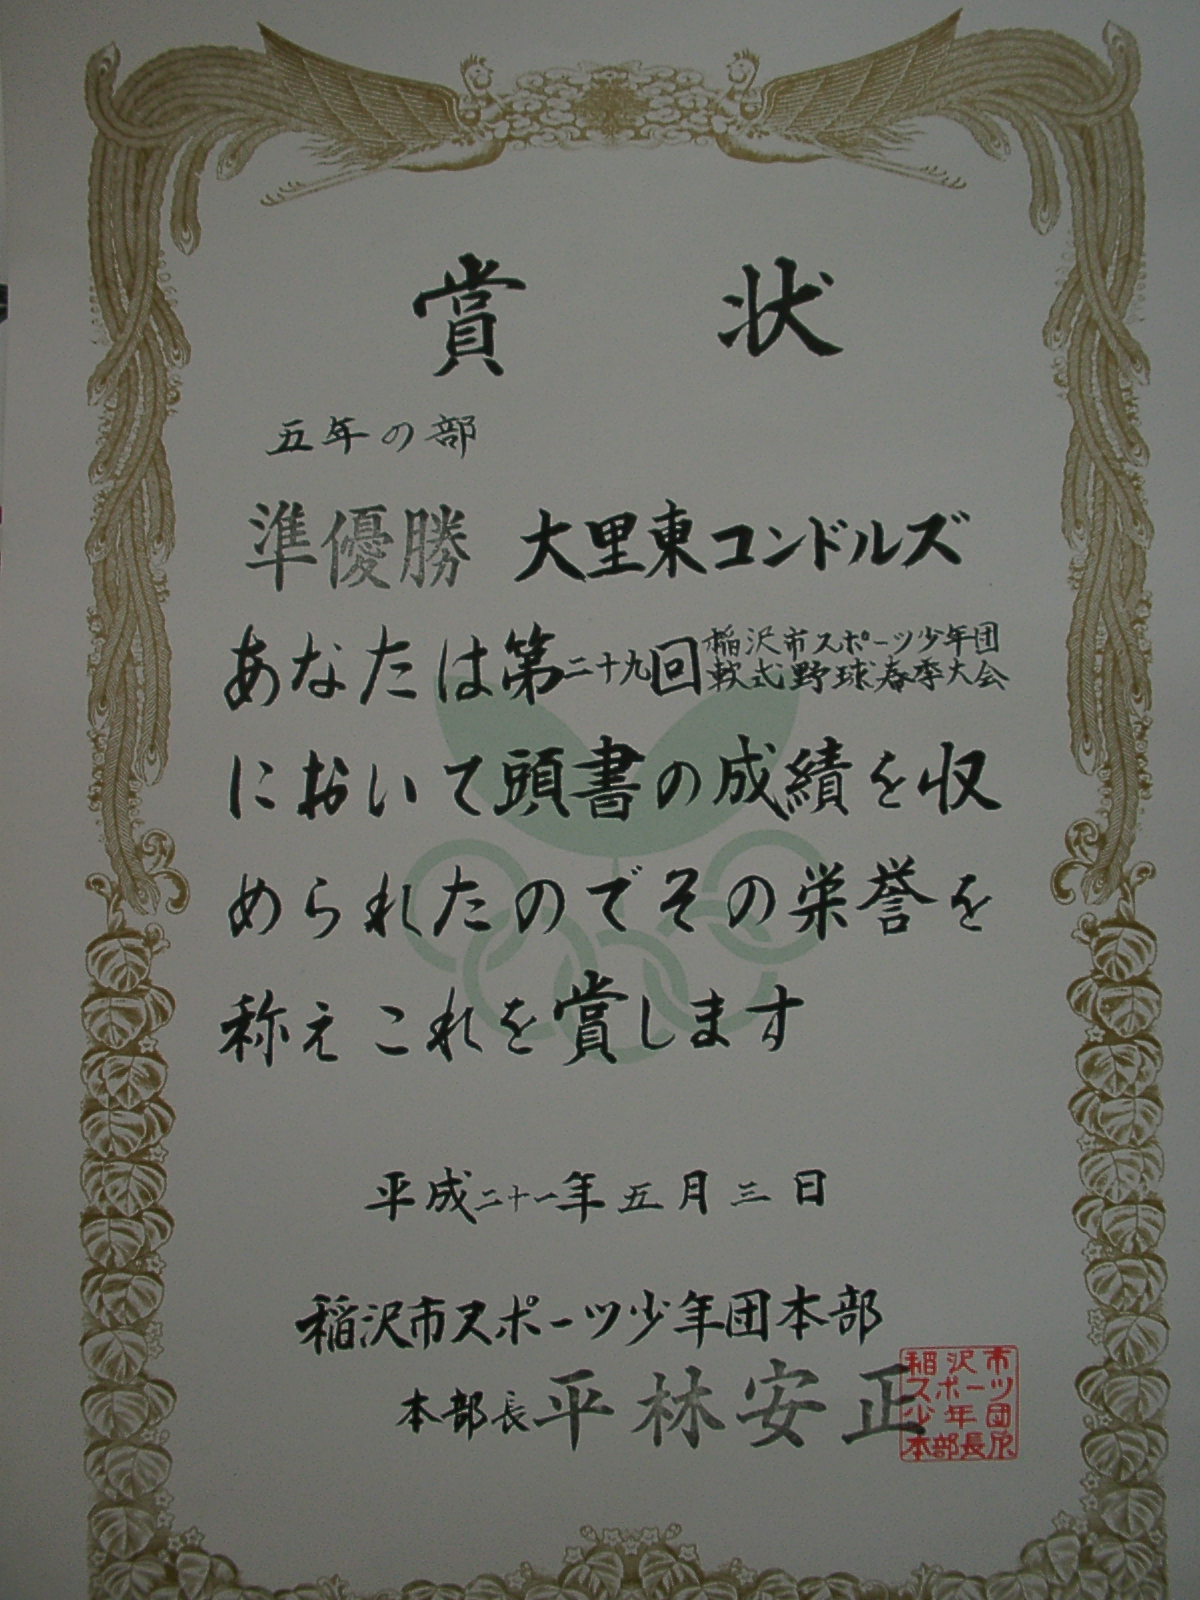 賞状
五年の部
準優勝 大里東コンドルズ
あなたは第二十九回稲沢市スポーツ少年団
軟式野球春季大会
において頭書の成績を収
められたのでその栄誉を
称えこれを賞します
平成二十一年五月三日
稲沢市スポーツ少年団本部
本部長 平林安正
稲沢市
スポーツ
少年団
本部長印